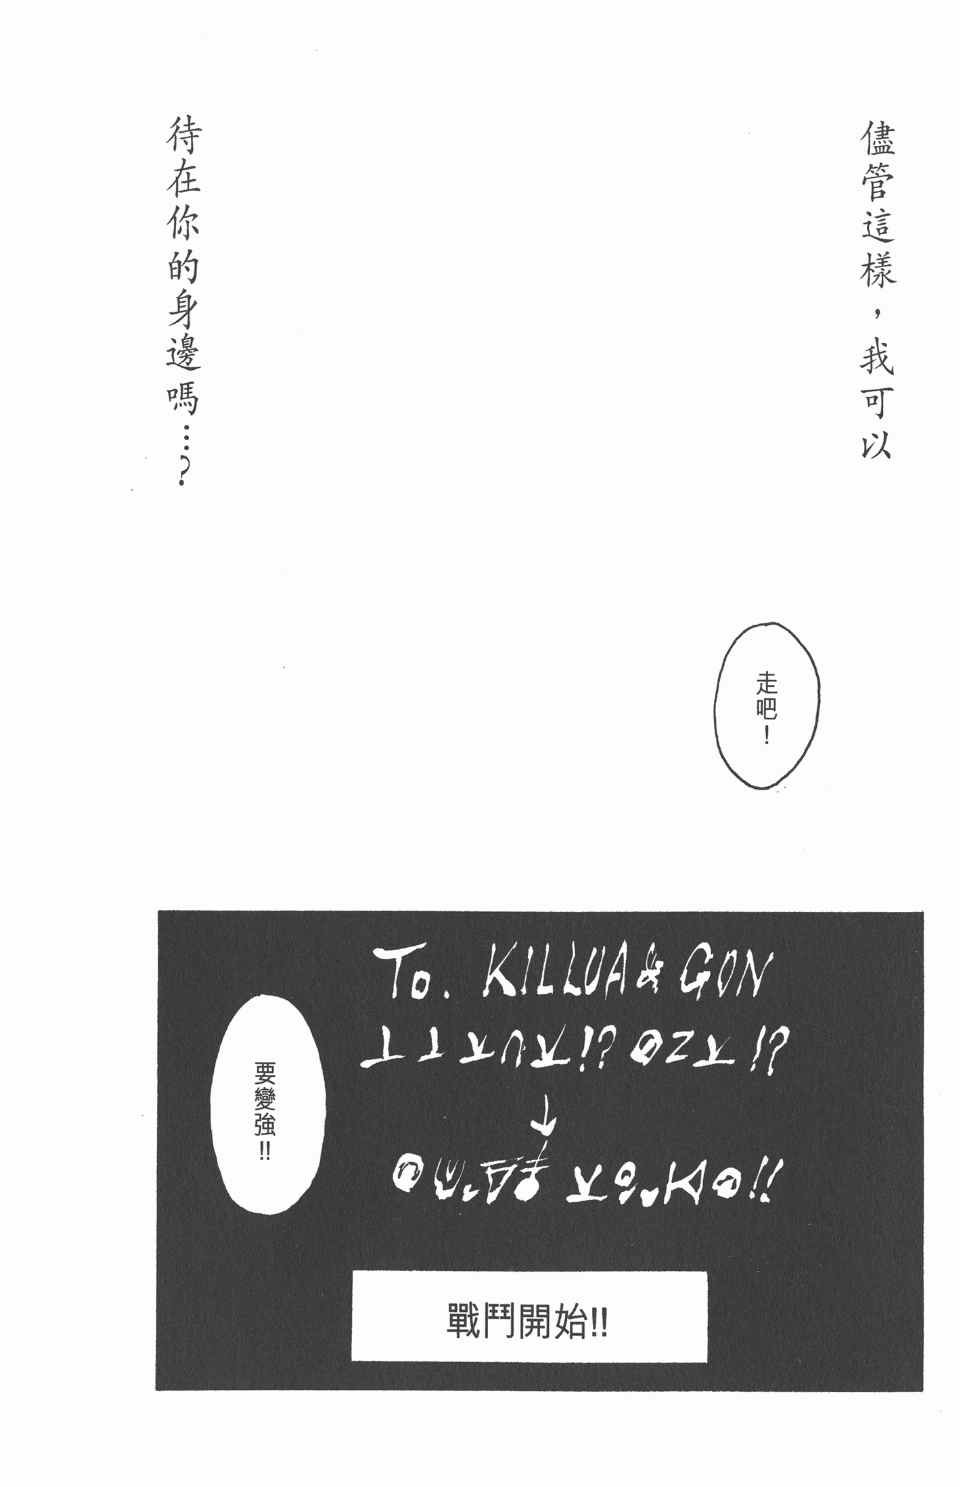 儘管這樣，我可以
待在你的身邊嗎…?
走吧！
To. KILLUA & GON
要變強!!
戰鬥開始!!